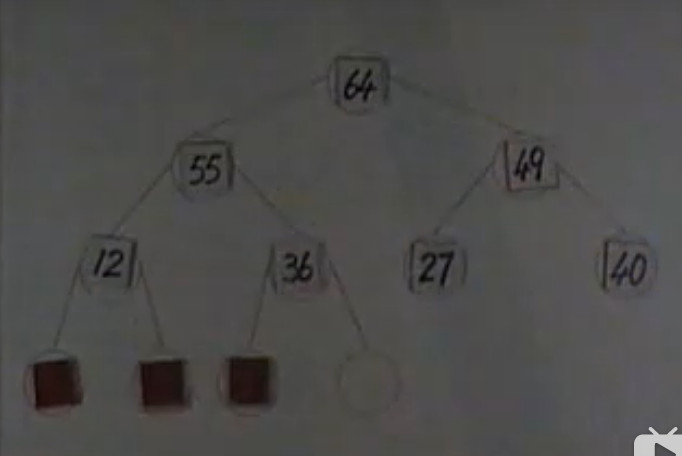 64
55 49
12 36 27 40